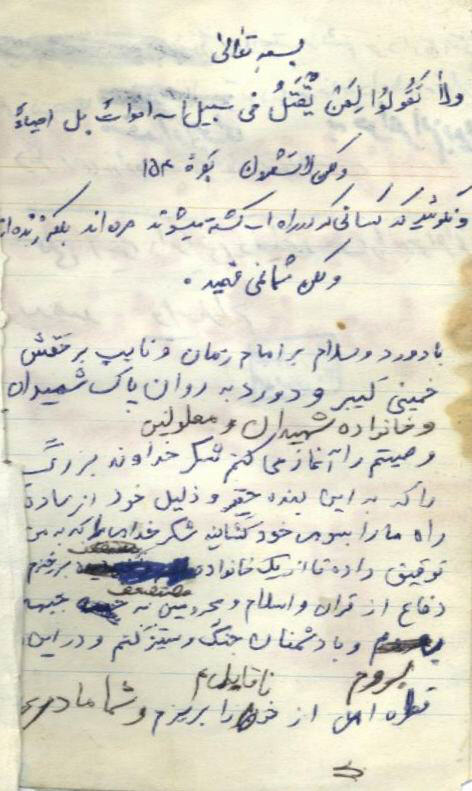 بسمه تعالی
ولا تَقُولوُا لِمَنْ یُقْتَلُ فی سبیل الله امواتٌ بل احیاءٌ
ولکن لا تشعرون بقره ۱۵۴
و نگوئید که کسانی که در راه الله کشته میشوند مرده اند بلکه زنده اند
ولکن شما نمی فهمید .
با دورد و سلام بر امام زمان و نایب برحقش
خمینی کبیر و دورد به روان پاک شهیدان
و خانواده شهیدان و معلولین
وصیتم را آغاز می کنم شکر خداوند بزرگ
را که به این بنده حقیر و ذلیل خود
راه ما را بسوی خود کشاینه شکر خدای را که به من
توفیق داده تا از یک خانواده مستضعف برخیزم
دفاع از قران و اسلام و مستضعف به جبهه
بروم و با دشمنان جنگ و ستیز کنم و در این
قطره اس از خون ناقابلم را بریزم و شما مادر